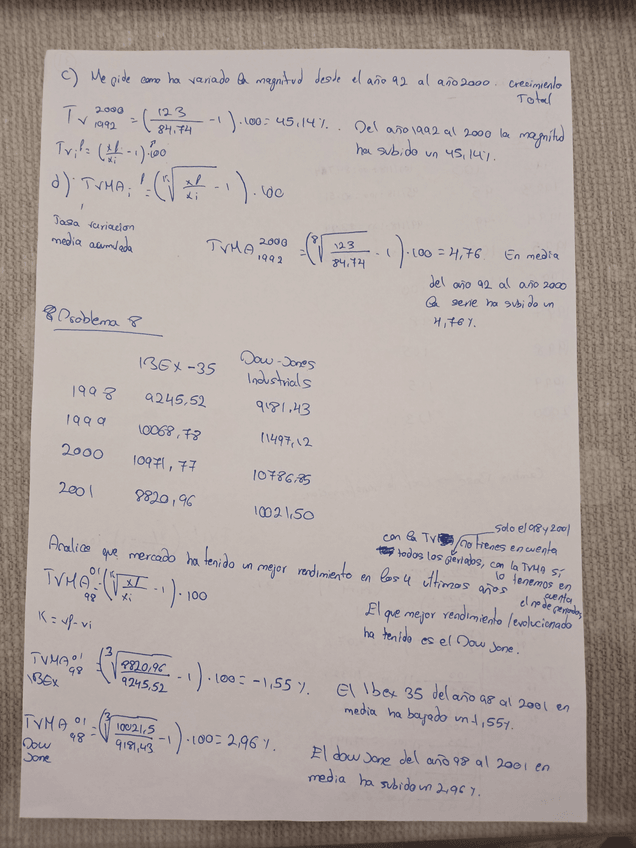 c) Me pide como ha variado la magnitud desde el año 92 al año 2000. crecimiento
Total
Tv 2000 1992 = (123/84,74 - 1) · 100 = 45,14%. Del año 1992 al 2000 la magnitud
ha subido un 45,14%.
Tv i f = (xf/xi - 1) · 100
d) TVMA i f = (k√(xf/xi) - 1) · 100
Tasa variacion
media acumulada
TVMA 2000 1992 = (8√(123/84,74) - 1) · 100 = 4,76 En media
del año 92 al año 2000
la serie ha subido un
4,76%.
Problema 8
IBEX-35 Dow-Jones
Industrials
1998 9245,52 9181,43
1999 10068,78 11497,12
2000 10971,77 10786,85
2001 8820,96 10021,50
solo el 98 y 2001
con la TV no tienes en cuenta
todos los periodos, con la TVMA sí
lo tenemos en
cuenta
el nº de periodos
Analice que mercado ha tenido un mejor rendimiento en los 4 ultimos años
TVMA 01 98 = (k√(xf/xi) - 1) · 100
El que mejor rendimiento/evolucionado
ha tenido es el Dow Jone.
K = vf - vi
TVMA 01 98 = (3√(8820,96/9245,52) - 1) · 100 = -1,55%.
IBEX
El Ibex 35 del año 98 al 2001 en
media ha bajado un 1,55%.
TVMA 01 98 = (3√(10021,5/9181,43) - 1) · 100 = 2,96%.
Dow
Jone
El dow Jone del año 98 al 2001 en
media ha subido un 2,96%.